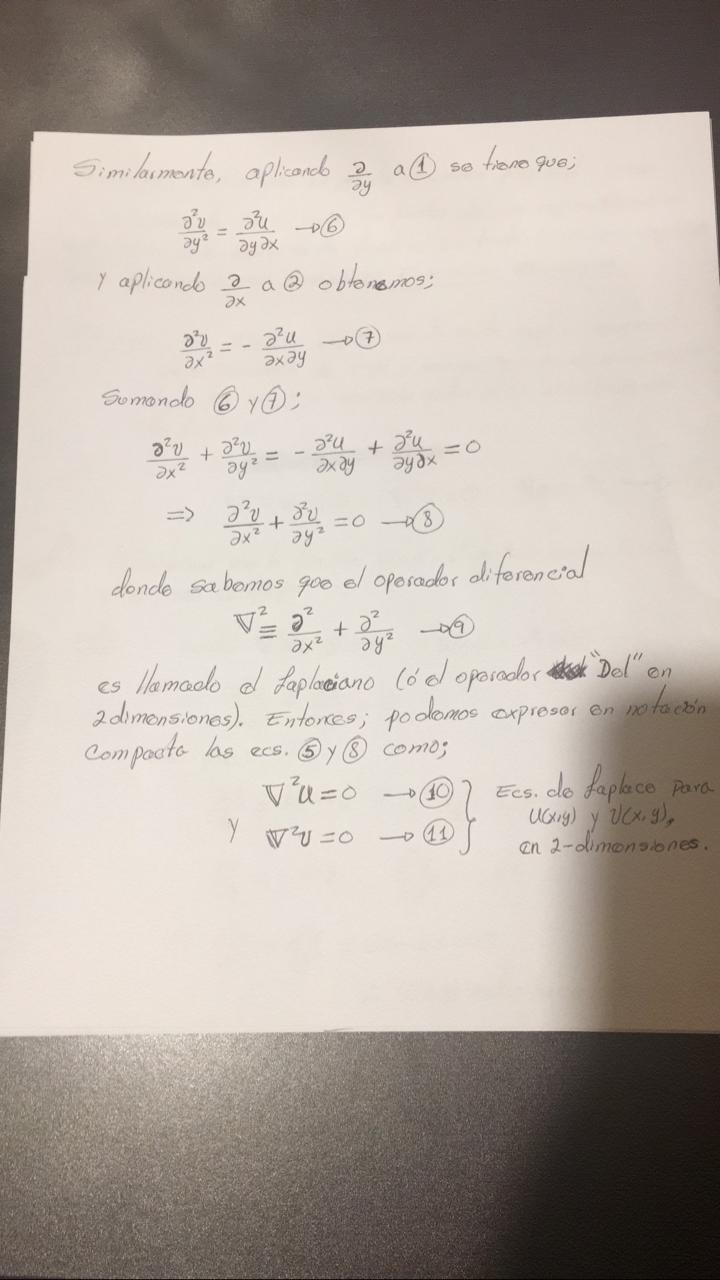 Similarmente, aplicando ∂/∂y a ① se tiene que;
∂²v/∂y² = ∂²u/∂y∂x → ⑥
y aplicando ∂/∂x a ② obtenemos;
∂²v/∂x² = - ∂²u/∂x∂y → ⑦
Sumando ⑥ y ⑦;
∂²v/∂x² + ∂²v/∂y² = - ∂²u/∂x∂y + ∂²u/∂y∂x = 0
=> ∂²v/∂x² + ∂²v/∂y² = 0 → ⑧
donde sabemos que el operador diferencial
∇² ≡ ∂²/∂x² + ∂²/∂y² → ⑨
es llamado el Laplaciano (ó el operador "Del" en
2 dimensiones). Entonces; podemos expresar en notación
compacta las ecs. ⑤ y ⑧ como;
∇²u = 0 → ⑩
y ∇²v = 0 → ⑪
Ecs. de Laplace para
u(x,y) y v(x,y),
en 2-dimensiones.